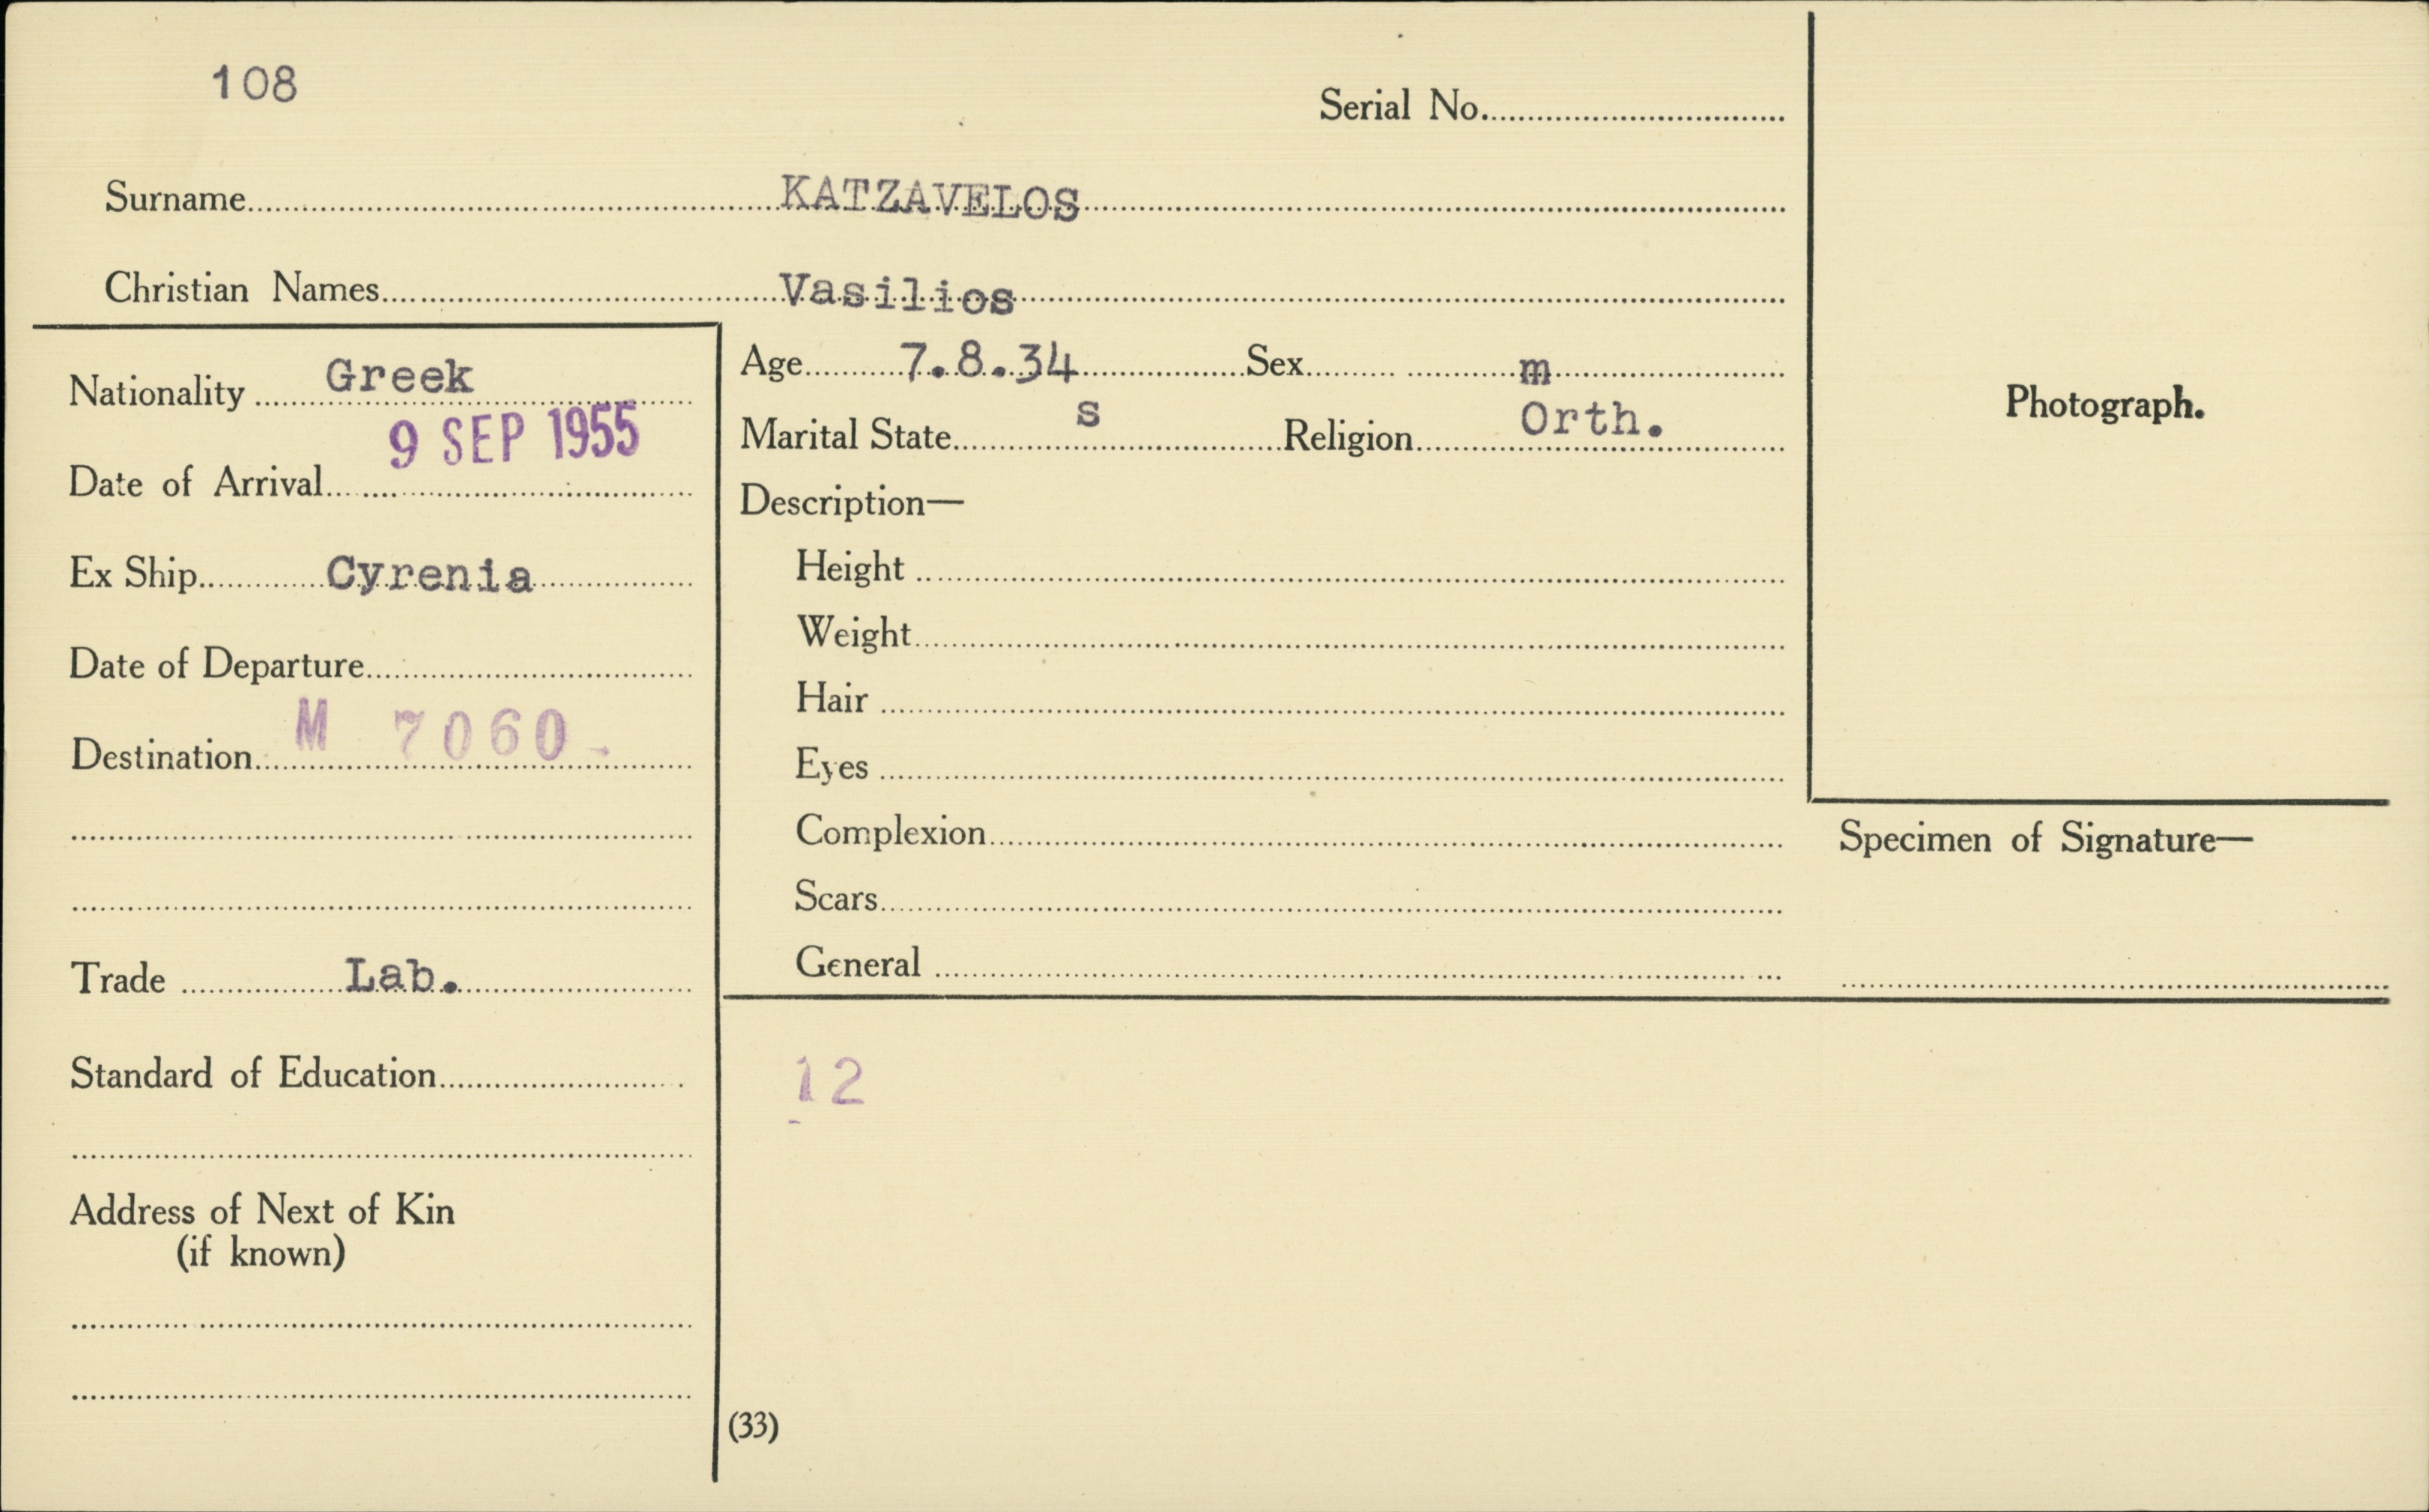 108
Serial No.
Surname KATZAVELOS
Christian Names Vasilios
Nationality Greek
9 SEP 1955
Date of Arrival
Ex Ship Cyrenia
Date of Departure
M 7060
Destination
Trade Lab.
Standard of Education
Address of Next of Kin
(if known)
Age 7.8.34 Sex m
Marital State s Religion Orth.
Description—
Height
Weight
Hair
Eyes
Complexion
Scars
General
12
(33)
Photograph.
Specimen of Signature—